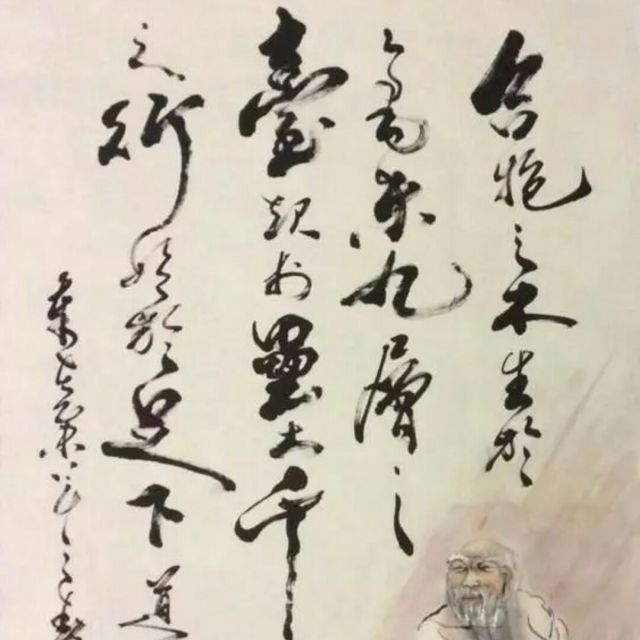 合抱之木生於
毫末九層之
臺起於壘土千
之行始於足下道